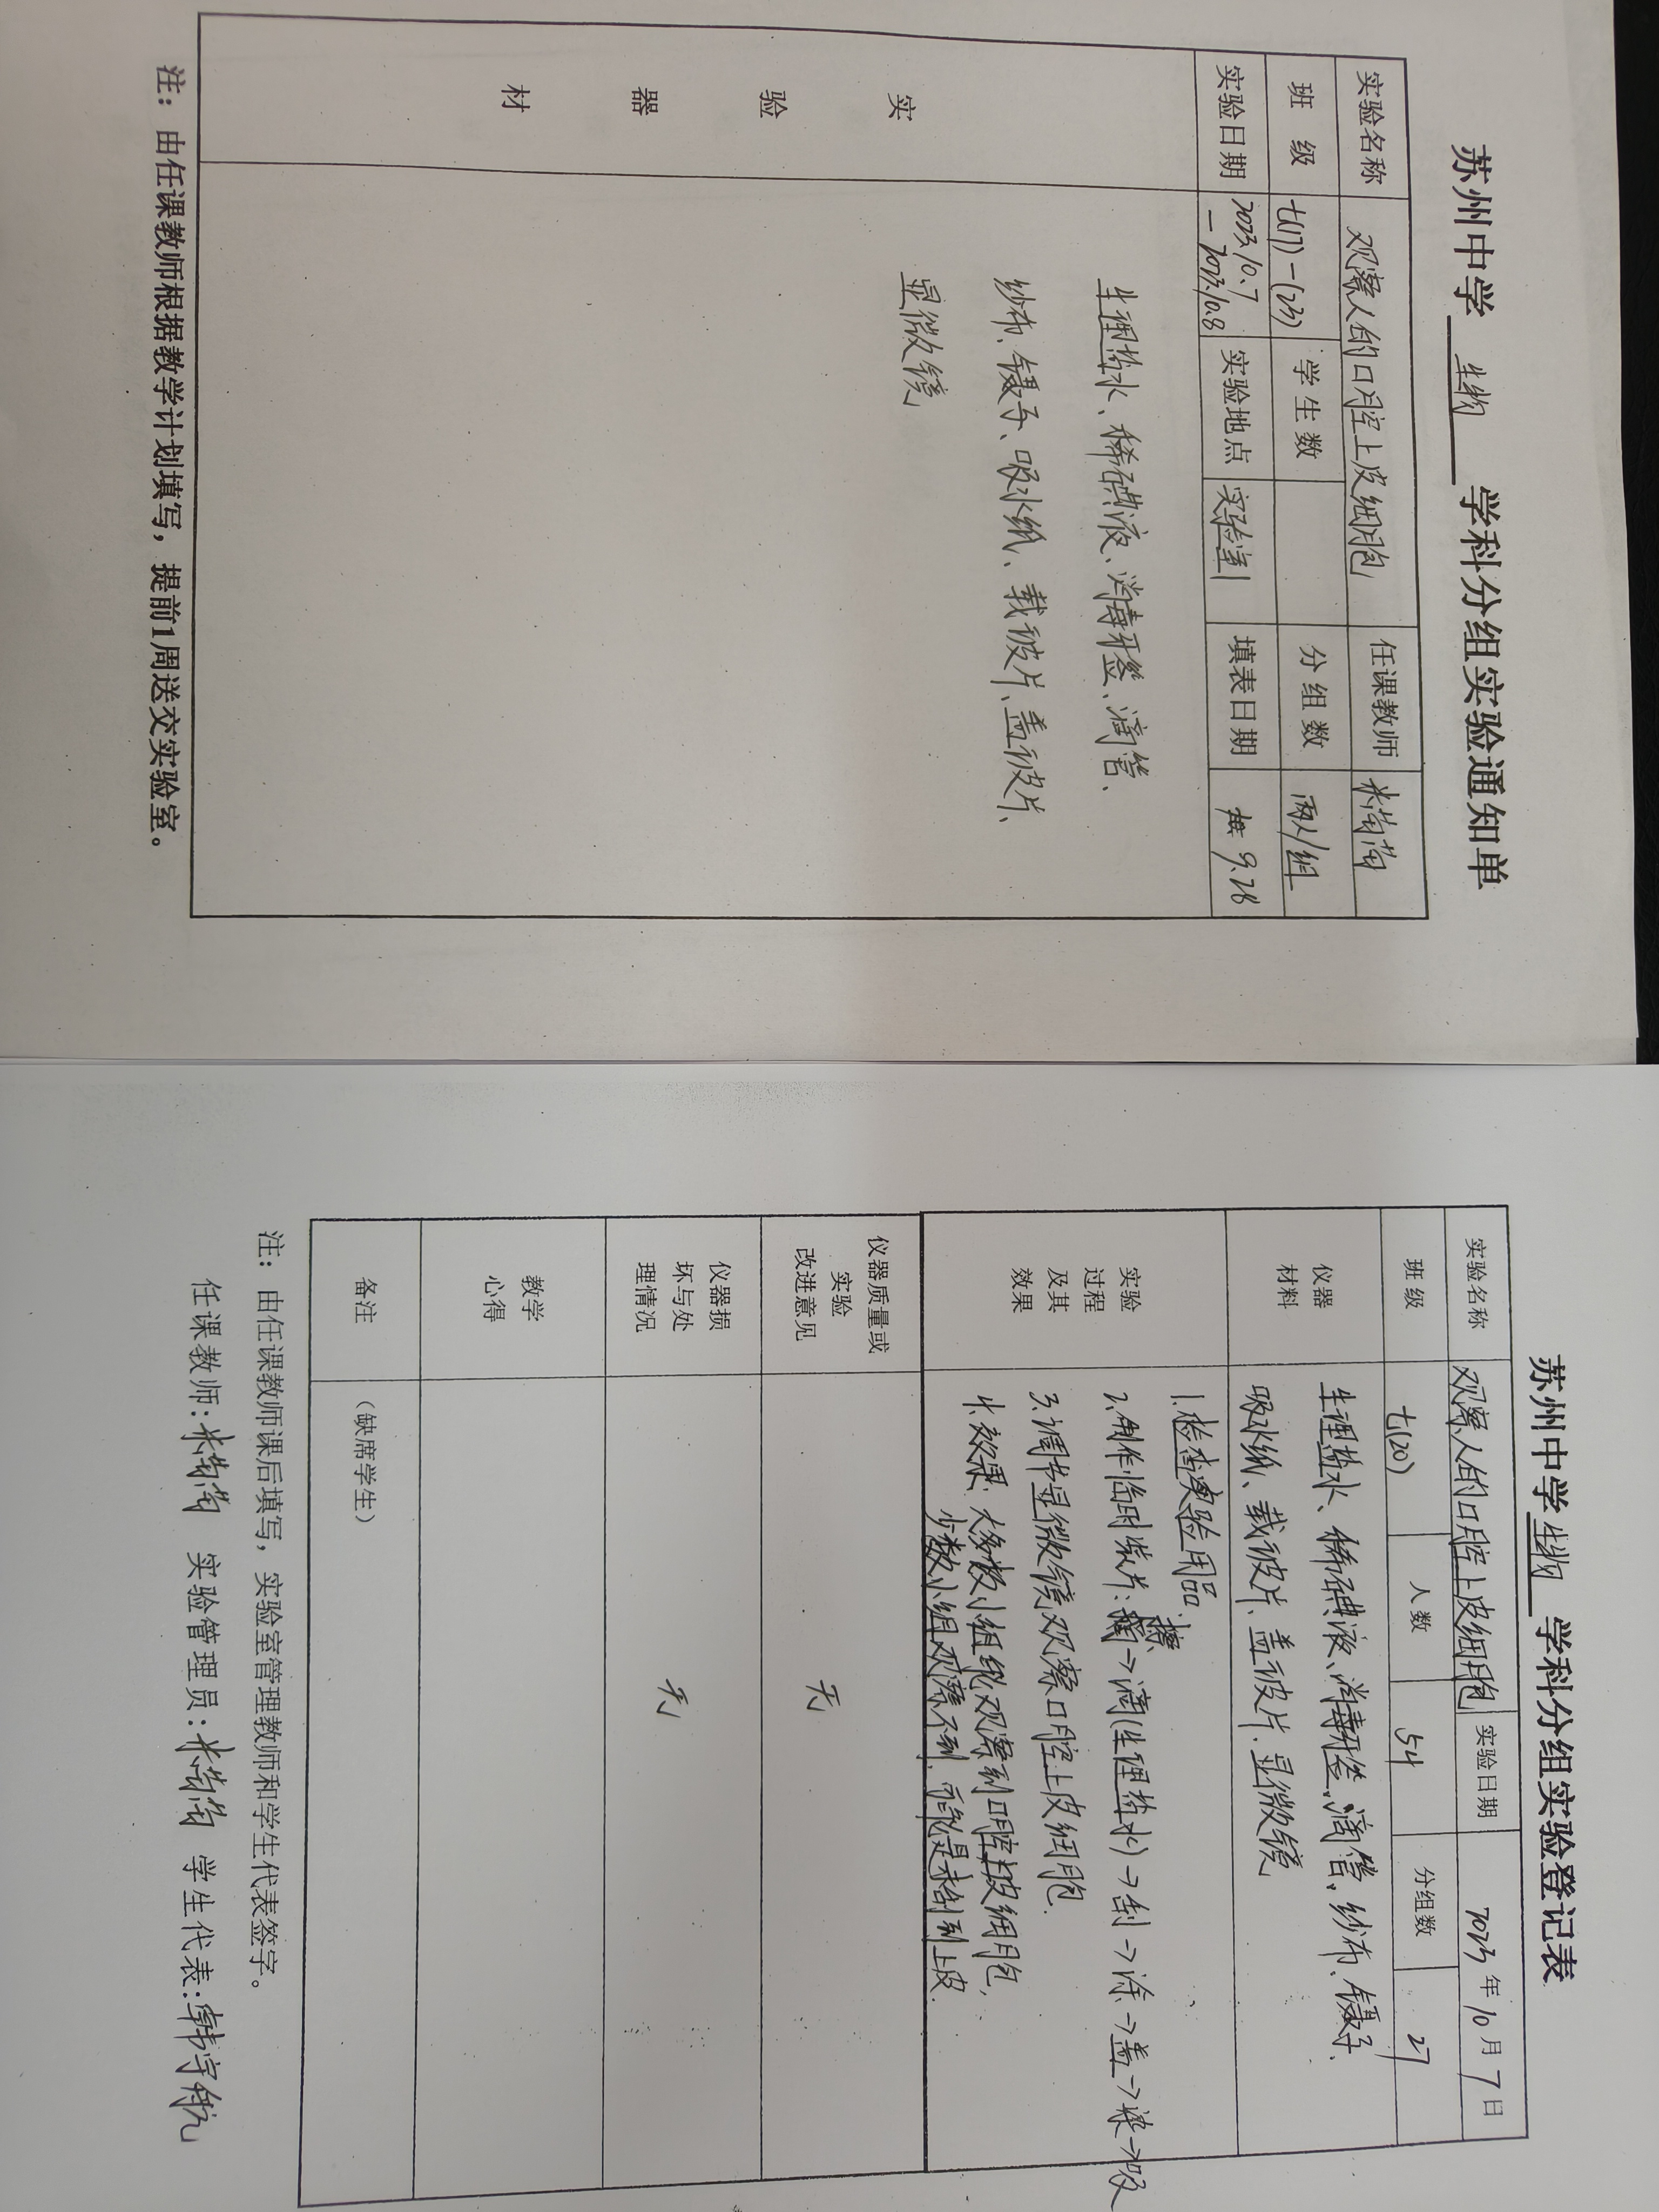 苏州中学 生物 学科分组实验通知单
实验名称 观察人的口腔上皮细胞 任课教师
班 级 七(17)-(23) 学生数 分组数 两人/组
实验日期 2023.10.7 - 2023.10.8 实验地点 实验室1 填表日期 9.28
实验器材
生理盐水、稀碘液、消毒牙签、滴管、
纱布、镊子、吸水纸、载玻片、盖玻片、
显微镜
注：由任课教师根据教学计划填写，提前1周送交实验室。
苏州中学 生物 学科分组实验登记表
实验名称 观察人的口腔上皮细胞 实验日期 2023 年 10 月 7 日
班级 七(20) 人数 54 分组数 27
仪器
材料
生理盐水、稀碘液、消毒牙签、滴管、纱布、镊子、
吸水纸、载玻片、盖玻片、显微镜
实验
过程
及其
效果
1.检查实验用品.
2.制作临时装片:擦→滴(生理盐水)→刮→涂→盖→染→吸
3.调节显微镜观察口腔上皮细胞.
4.效果:大多数小组能观察到口腔上皮细胞,
少数小组观察不到,可能是未刮到上皮.
仪器质量或
实验
改进意见
无
仪器损
坏与处
理情况
无
教学
心得
备注
（缺席学生）
注：由任课教师课后填写，实验室管理教师和学生代表签字。
任课教师: 实验管理员: 学生代表:韩宇航